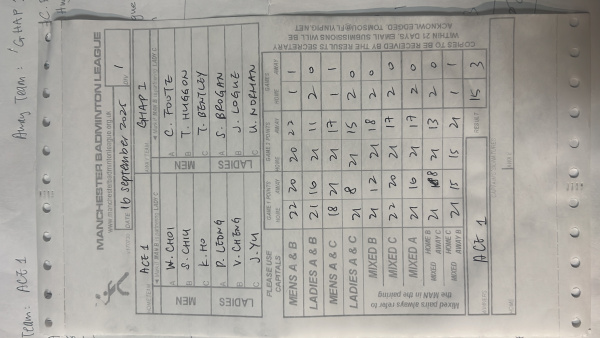 Team: ACE 1
Away Team: 'GHAP 1
MANCHESTER BADMINTON LEAGUE
DATE 16 september 2025 DIV. 1
ACE 1 GHAP 1
MEN A W. CHOI MEN A C. FOOTE
B S. CHIU B T. HUGGON
C K. HO C T. BENTLEY
LADIES A P. LEONG LADIES A S. BROGAN
B V. CHENG B J. LOGUE
C J. YU C U. NORMAN
PLEASE USE CAPITALS GAME 1 POINTS HOME AWAY GAME 2 POINTS HOME AWAY GAMES HOME AWAY
MENS A & B 22 20 20 22 1 1
LADIES A & B 21 16 21 11 2 0
MENS A & C 18 21 21 17 1 1
LADIES A & C 21 8 21 15 2 0
MIXED B 21 12 21 18 2 0
MIXED C 22 20 21 17 2 0
MIXED A 21 16 21 17 2 0
MIXED HOME B AWAY C 21 18 21 13 2 0
MIXED HOME C AWAY B 21 15 15 21 1 1
Mixed pairs always refer to the MAN in the pairing
ACE 1 RESULT 15 3
COPIES TO BE RECEIVED BY THE RESULTS SECRETARY
WITHIN 21 DAYS. EMAIL SUBMISSIONS WILL BE